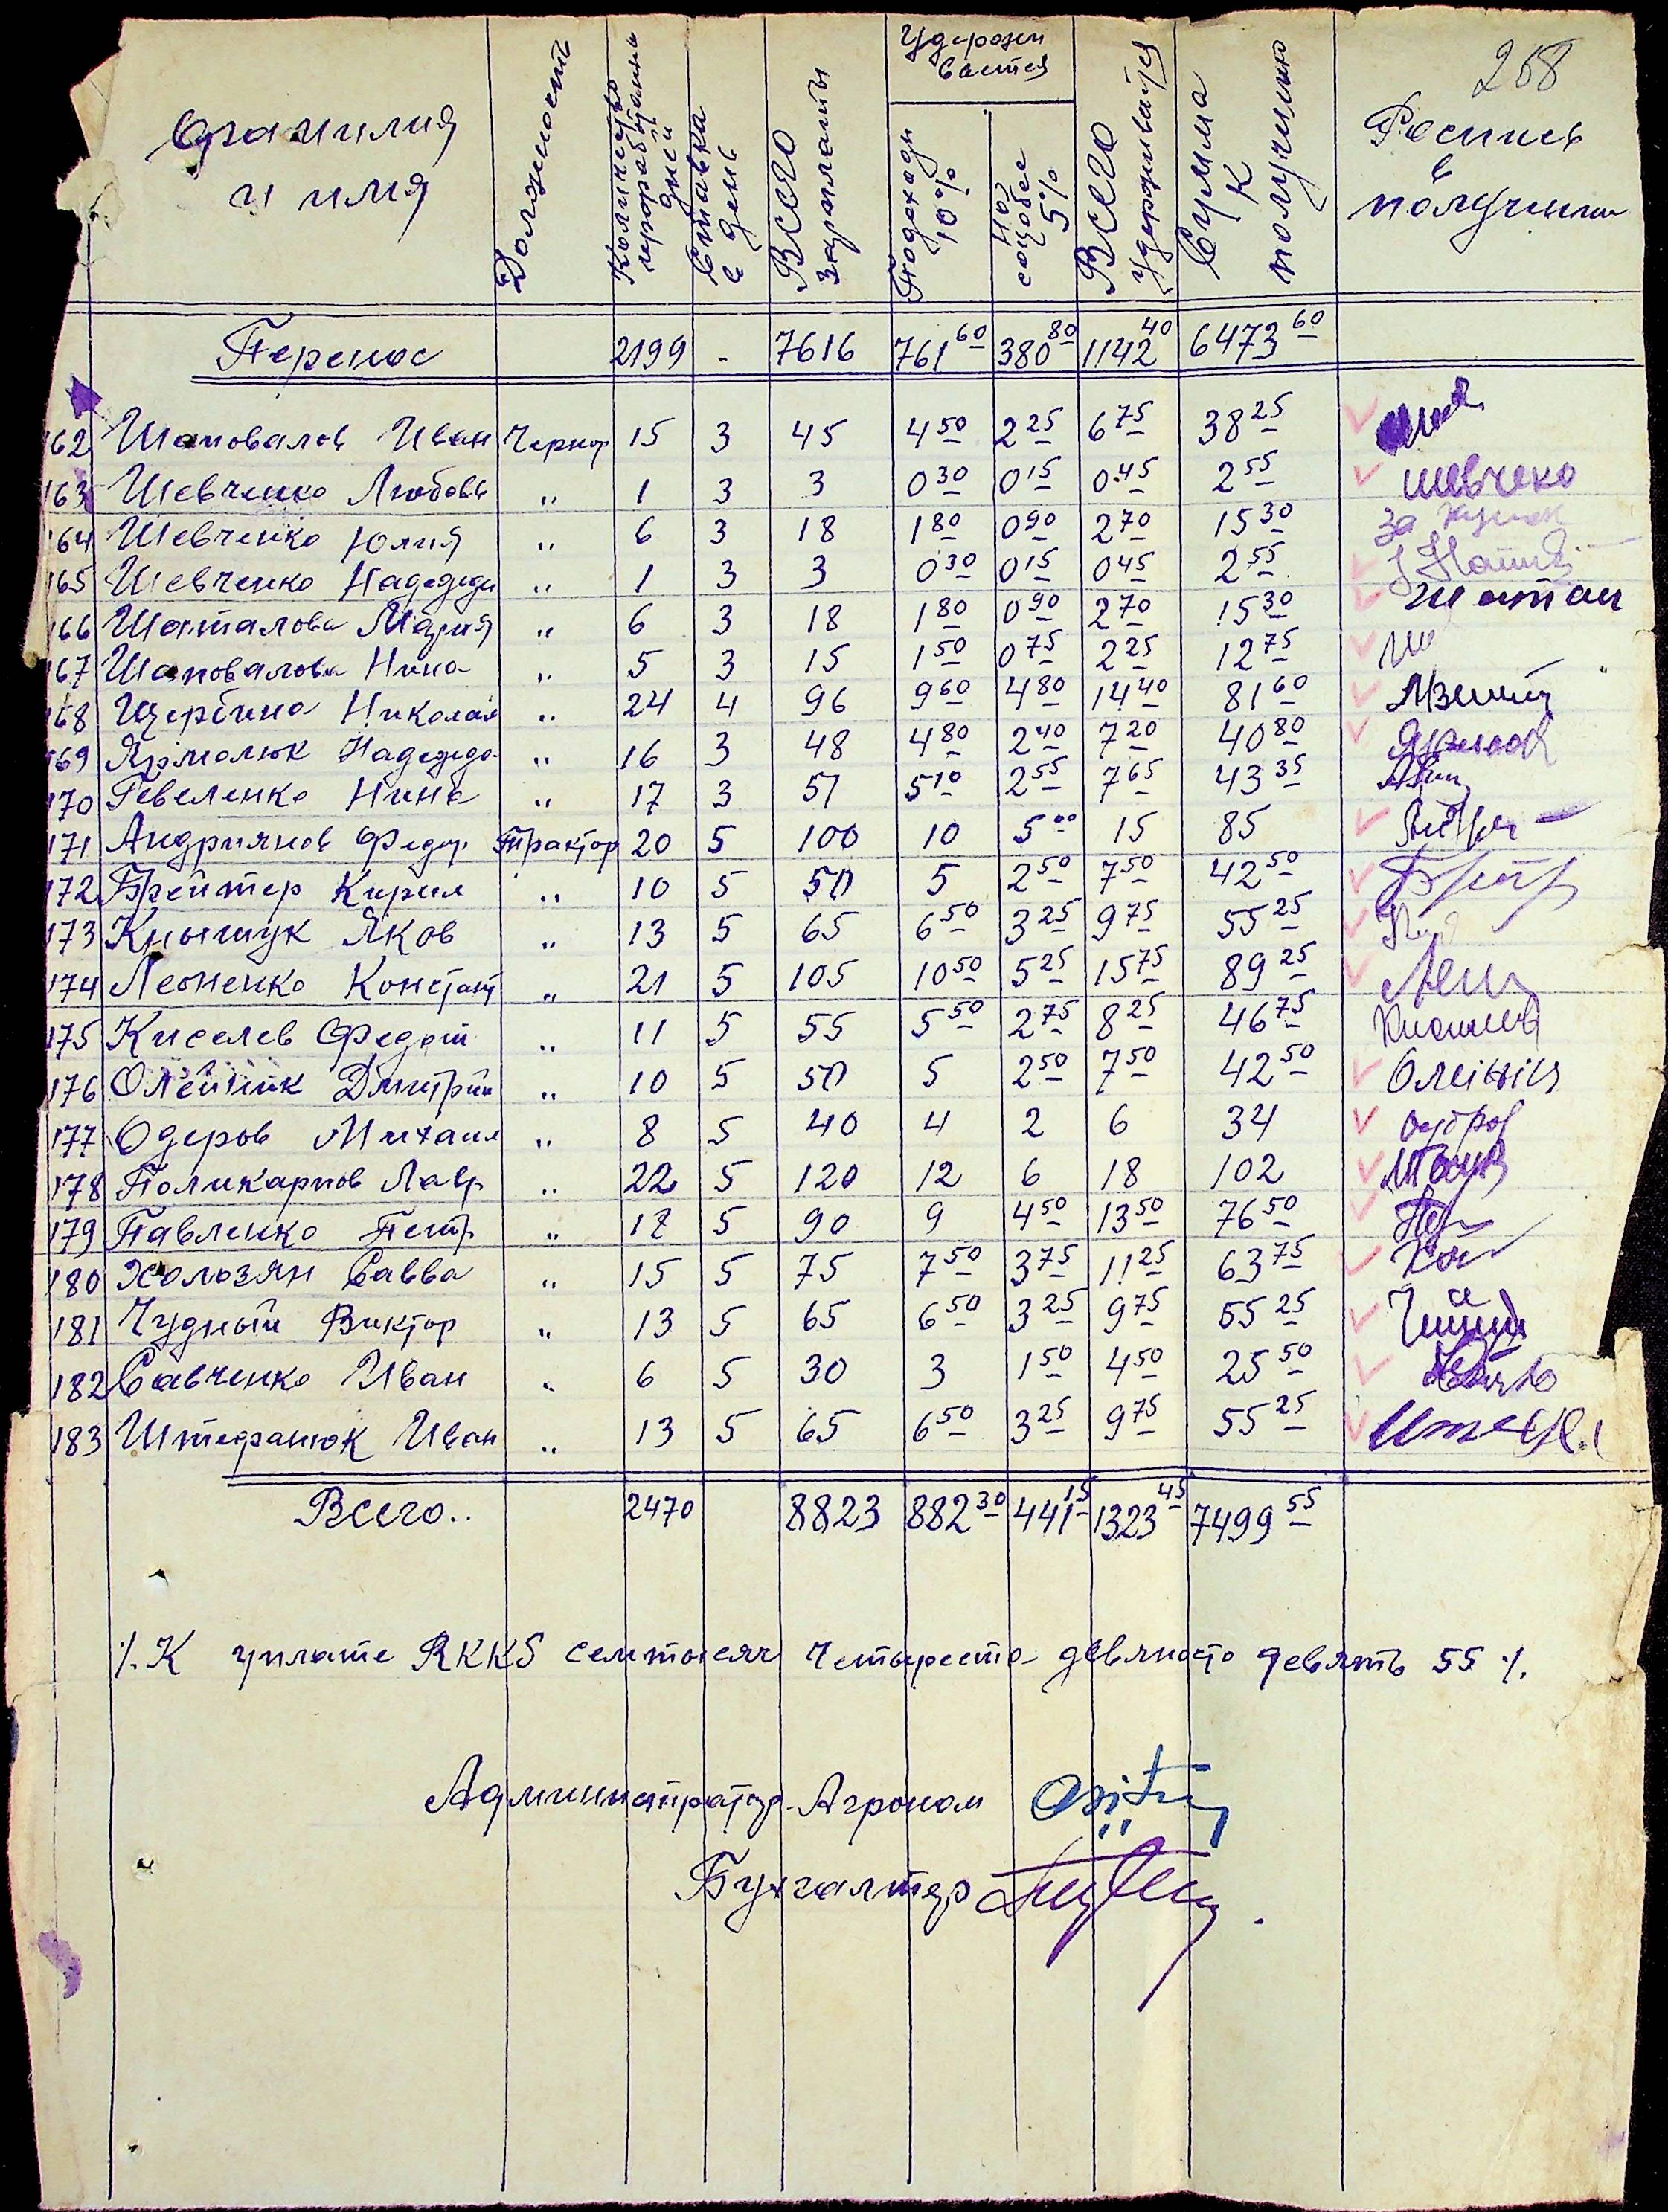 268
Фамилия и имя Должность Количество отработанных дней Ставка в день Всего зарплаты Удерживается Подоходн 10% На соцобес 5% Всего удерживается Сумма к получению Роспись в получении
Перенос 2199 - 7616 761 60 380 80 1142 40 6473 60
162 Шаповалов Иван Чернор 15 3 45 4 50 2 25 6 75 38 25
163 Шевченко Любовь " 1 3 3 0 30 0 15 0 45 2 55 шевчеко
164 Шевченко Юлия " 6 3 18 1 80 0 90 2 70 15 30 За
165 Шевченко Надежда " 1 3 3 0 30 0 15 0 45 2 55
166 Шаталова Мария " 6 3 18 1 80 0 90 2 70 15 30 Шатал
167 Шаповалова Нина " 5 3 15 1 50 0 75 2 25 12 75 Ш
168 Щербина Николай " 24 4 96 9 60 4 80 14 40 81 60
169 Ярмолюк Надежда " 16 3 48 4 80 2 40 7 20 40 80
170 Гевеленко Нина " 17 3 51 5 10 2 55 7 65 43 35
171 Андриянов Федор Трактор 20 5 100 10 5 00 15 85
172 Брейтер Кирил " 10 5 50 5 2 50 7 50 42 50
173 Кнышук Яков " 13 5 65 6 50 3 25 9 75 55 25
174 Леоненко Констант " 21 5 105 10 50 5 25 15 75 89 25
175 Киселев Федот " 11 5 55 5 50 2 75 8 25 46 75
176 Олейник Дмитрий " 10 5 50 5 2 50 7 50 42 50 Олійнік
177 Одеров Михаил " 8 5 40 4 2 6 34
178 Поликарпов Лавр " 22 5 120 12 6 18 102
179 Павленко Петр " 18 5 90 9 4 50 13 50 76 50
180 Холозян Савва " 15 5 75 7 50 3 75 11 25 63 75
181 Чудный Виктор " 13 5 65 6 50 3 25 9 75 55 25
182 Савченко Иван " 6 5 30 3 1 50 4 50 25 50
183 Штефанюк Иван " 13 5 65 6 50 3 25 9 75 55 25
Всего.. 2470 8823 882 30 441 15 1323 45 7499 55
/. К уплате RKKS семтысяч четыреста девяносто девять 55 /.
Администратор-Агроном
Бухгалтер